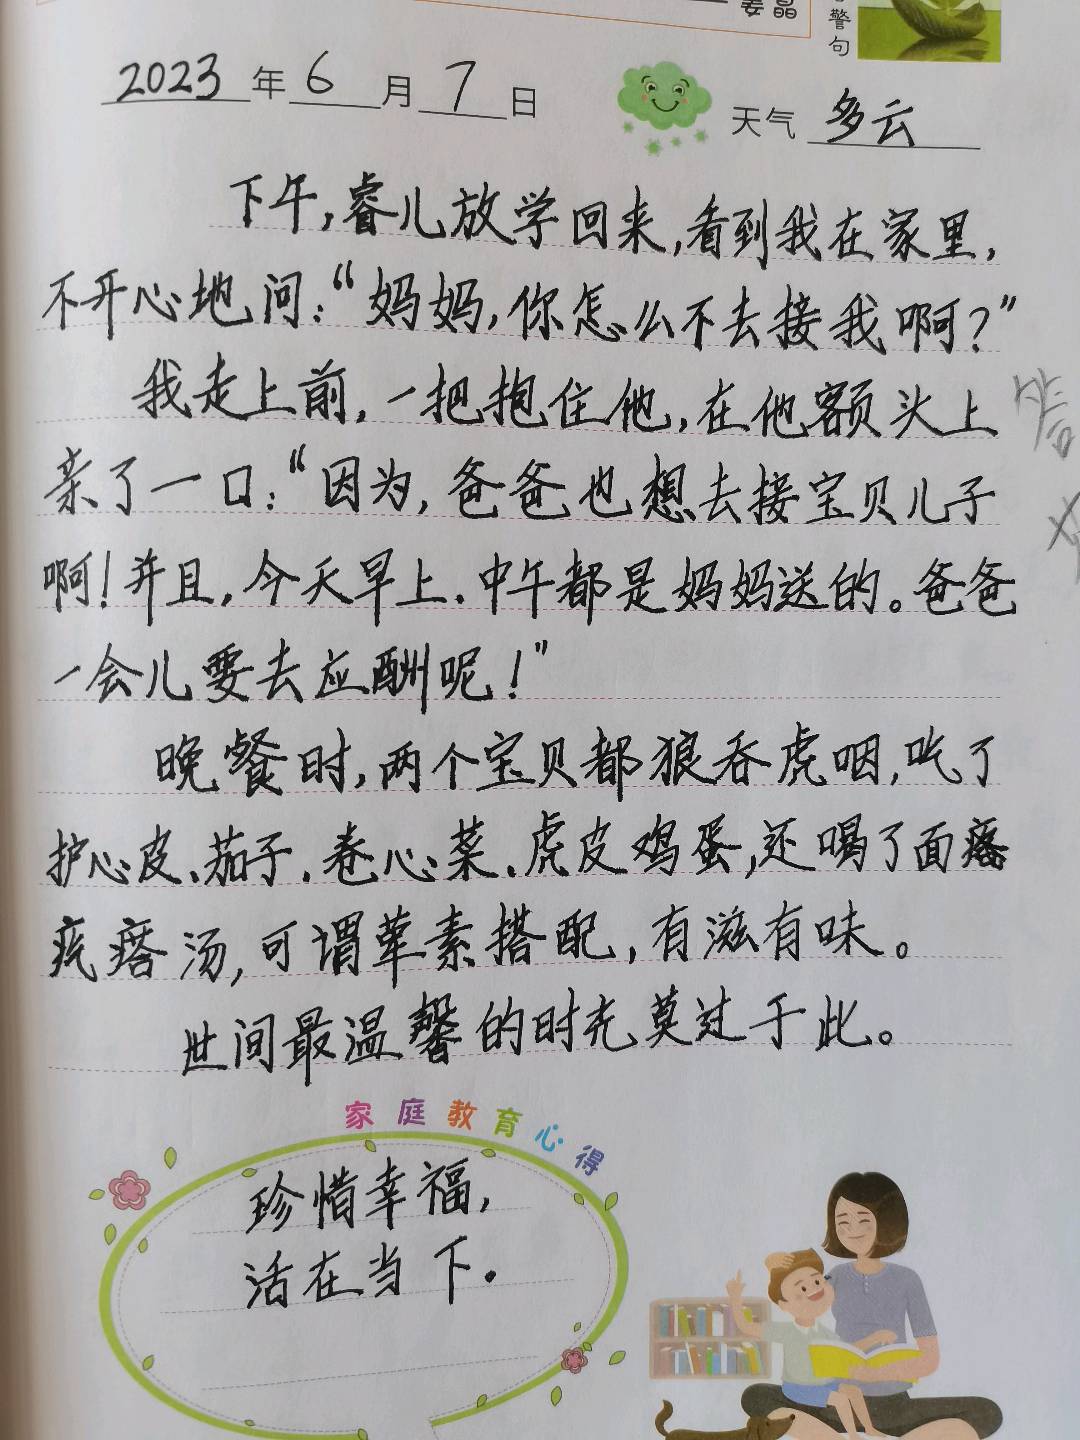 姜晶
警句
2023年6月7日
天气 多云
下午,睿儿放学回来,看到我在家里,
不开心地问:“妈妈,你怎么不去接我啊?”
我走上前,一把抱住他,在他额头上
亲了一口:“因为,爸爸也想去接宝贝儿子
啊!并且,今天早上、中午都是妈妈送的。爸爸
一会儿要去应酬呢!”
晚餐时,两个宝贝都狼吞虎咽,吃了
护心皮、茄子、卷心菜、虎皮鸡蛋,还喝了面
疙瘩汤,可谓荤素搭配,有滋有味。
世间最温馨的时光莫过于此。
家庭教育心得
珍惜幸福,
活在当下.